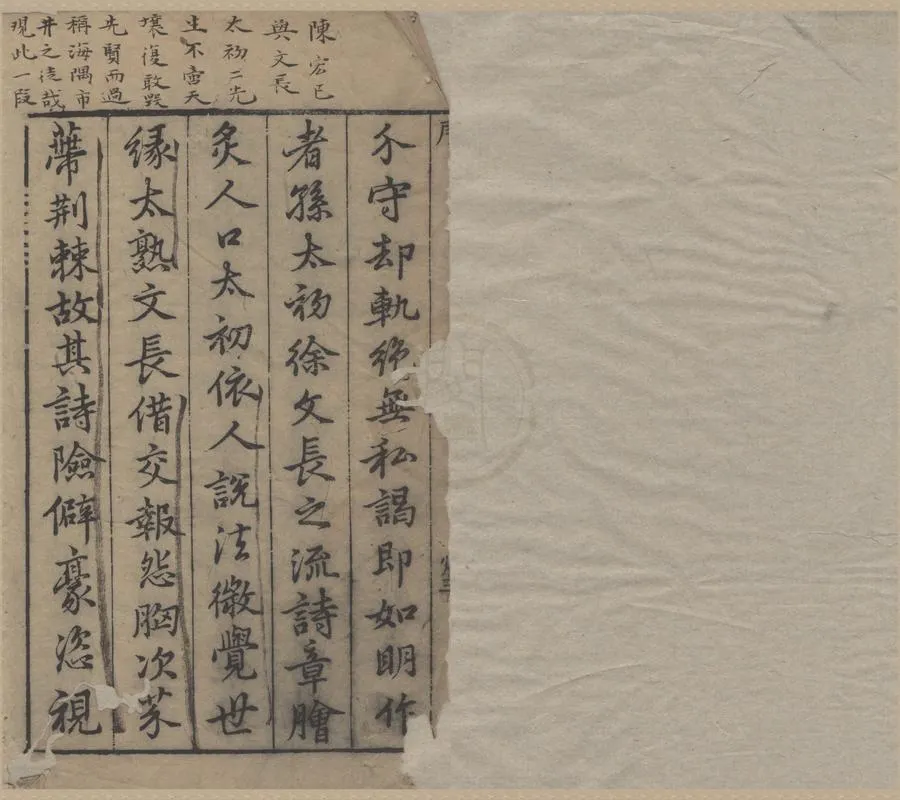 陳宏已
與文長
太初二先
生不啻天
壤復敢毀
先賢而過
稱海隅市
井之徒哉
現此一段
不守却軌絶無私謁即如明作
者孫太初徐文長之流詩章膾
炙人口太初依人說法微覺世
緣太熟文長借交報怨胸次棼
荊棘故其詩險僻豪恣視